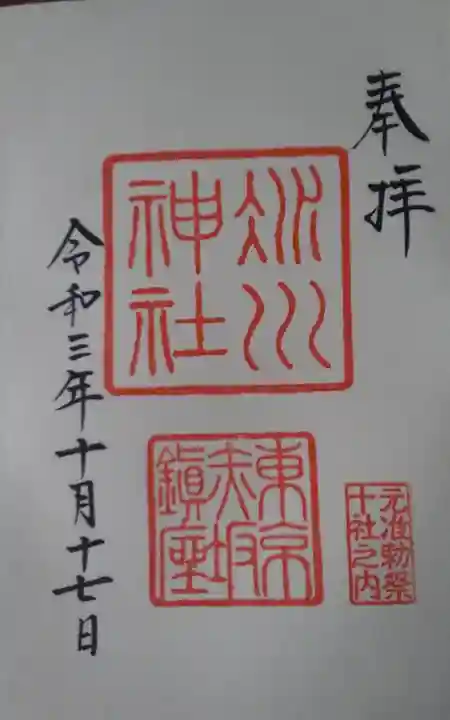 奉拝
氷川
神社
東京
赤坂
鎭座
元准勅祭
十社之内
令和三年十月十七日